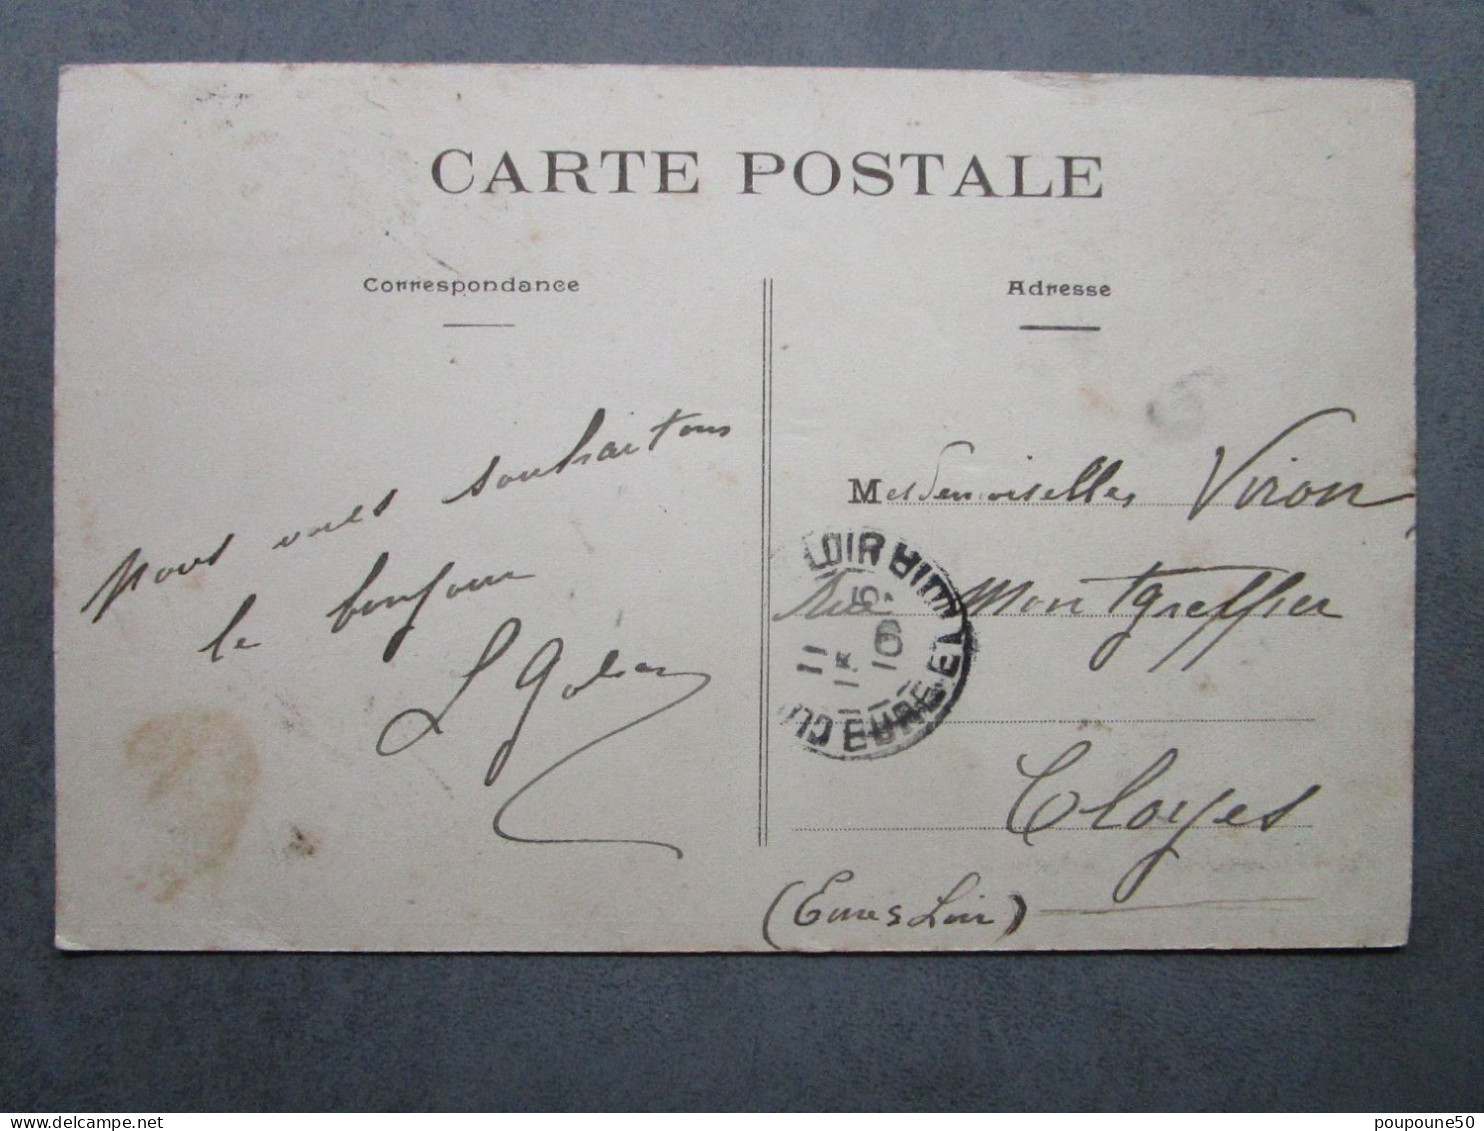 CARTE POSTALE
Correspondance
Nous vous souhaitons
le bonjour
Adresse
Mesdemoiselles Viron
rue Montgreffier
Cloyes
(Eure & Loir)
EURE-ET-LOIR
poupoune50